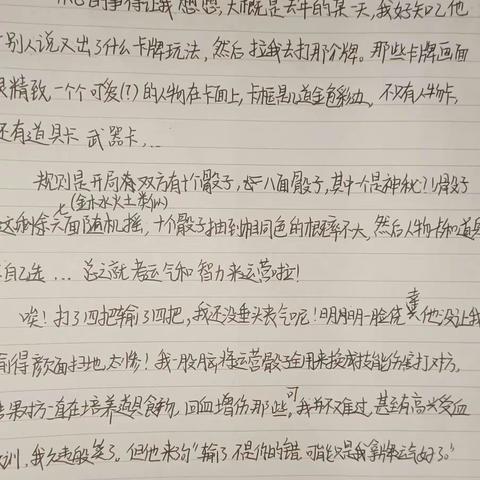 的事得让我想想,大概是去年的某一天,我好知己他
别人说又出了什么卡牌玩法,然后拉我去打那个牌。那些卡牌画面
很精致,一个个可爱(?)的人物在卡面上,卡框是几道金色彩边,不仅有人物卡,
还有道具卡 武器卡,...
规则是开局双方有十个骰子,八面骰子,其中一个是神秘?!骰子
(金木水火土类似)
这剩余七面随机摇,十个骰子抽到相同色的概率不大,然后人物卡和道具
自己选...总之就考运气和智力来运营啦!
唉!打了四把输了四把,我还没垂头丧气呢!明明一脸侥幸他没让我
得颜面扫地,太惨!我一股脑将运营骰子全用来换成技能伤害打对方,
结果对方一直在培养道具食物,回血增伤那些,可我并不难过,甚至有高兴受血
训,我笑了。但他来句"输了不是你的错,可能又是我拿牌运气好了。"